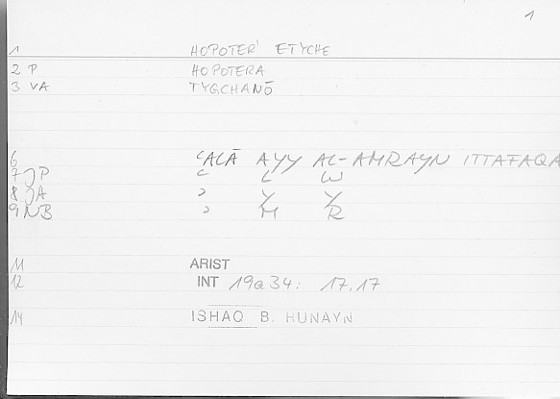 1
1 HOPOTER' ETYCHE
2 P HOPOTERA
3 VA TYGCHANŌ
6 ʿALĀ AYY AL-AMRAYN ITTAFAQA
7 JP ʿ L W
8 JA ʾ Y Y
9 NB ʾ M R
11 ARIST
12 INT 19a34: 17.17
14 ISHAQ B. HUNAYN